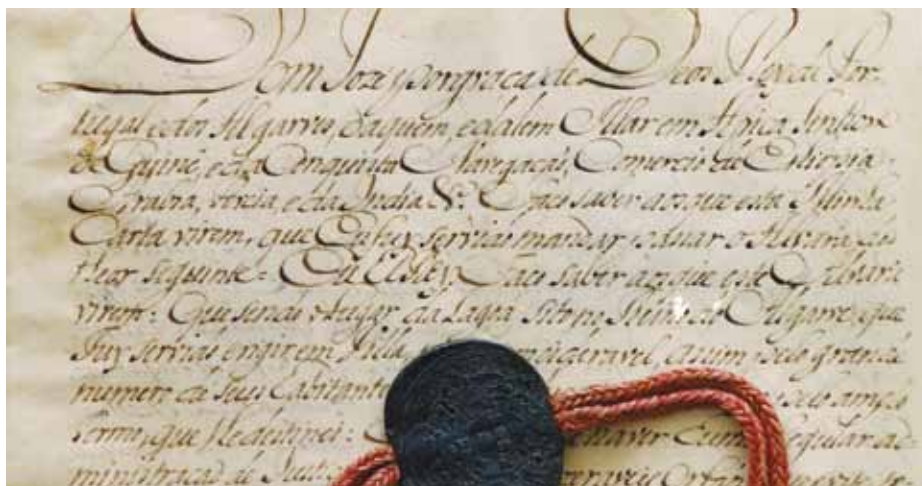 Dom Joze por graça de Deos Rey de Por-
tugal e dos Algarves, daquem, e dalem Mar em Africa Senhor
de Guiné, e da Conquista Navegaçaõ, Comercio da Ethiopia
Arabia, Persia, e da India &.ª Faço saber aos que esta Minha
Carta virem, que Eu fuy servido mandar o Alvará do
theor seguinte = Eu ElRey Faço saber aos que este Alvará
virem: Que sendo o Lugar da Lagoa sito no Reino do Algarve, que
Fuy servido erigir em Villa assim pelo grande
numero de seus habitantes pelo amplo
termo, que lhe destinei: haver Regular ad
ministraçaõ de